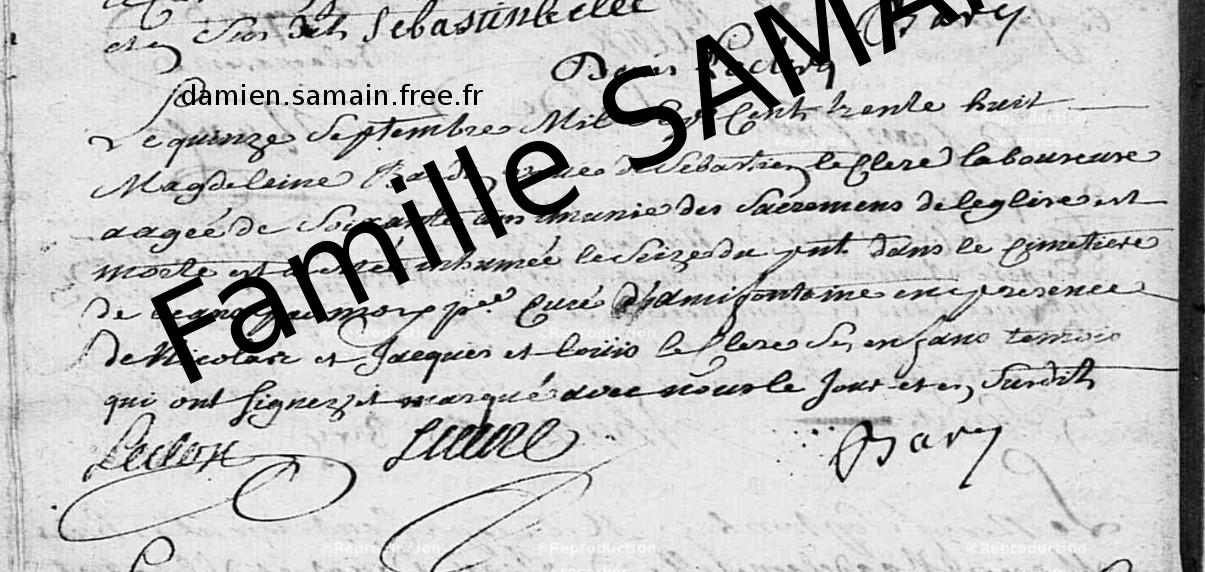 et an Susdits Sebastin le cler
Bary
Denis Leclerq
damien.samain.free.fr
Famille SAMAI
Le quinze Septembre Mil Sept Cent trente huit
Magdeleine veuve de Sebastien le Clerc laboureure
aagée de Soixante ans munie des Sacremens de leglise est
morte et a esté inhumée le Seize du pnt dans le Cimetiere
de pre Curé d'amifontaine en presence
de Nicolas et Jacques et Loüis le Clerc Ses enfans temois
qui ont Signez et marqué avec nous le Jour et an Susdits
Leclerc
Bary
Reproduction
Reproduction
Reproduction
Reproduction